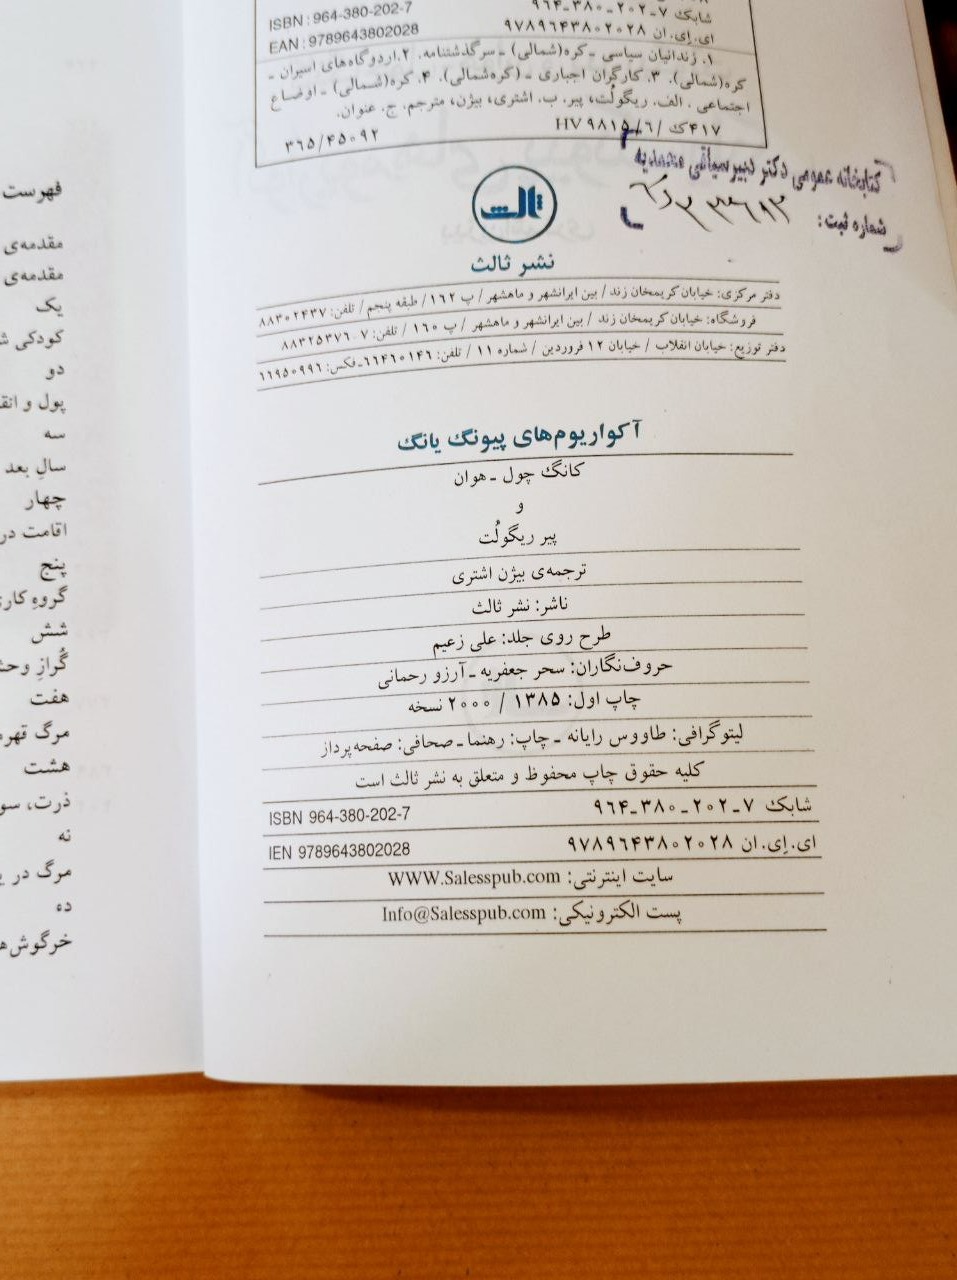 ISBN : 964-380-202-7
شابک ۷-۲۰۲-۳۸۰-۹۶۴
EAN : 9789643802028
ای.اِی.ان ۹۷۸۹۶۴۳۸۰۲۰۲۸
۱. زندانیان سیاسی - کره(شمالی) - سرگذشتنامه. ۲.اردوگاه‌های اسیران -
کره(شمالی). ۳. کارگران اجباری - (کره‌شمالی). ۴. کره(شمالی) - اوضاع
اجتماعی . الف. ریگولُت، پیر. ب. اشتری، بیژن، مترجم. ج. عنوان.
۳۶۵/۴۵۰۹۲
HV ۹۸۱۵/۶/ک۴۱۷
کتابخانه عمومی دکتر دبیرسیاقی محمدیه
شماره ثبت:
ثالث
نشر ثالث
دفتر مرکزی: خیابان کریمخان زند / بین ایرانشهر و ماهشهر / پ ۱۶۲ / طبقه پنجم / تلفن: ۸۸۳۰۲۴۳۷
فروشگاه: خیابان کریمخان زند / بین ایرانشهر و ماهشهر / پ ۱۶۰ / تلفن: ۷-۸۸۳۲۵۳۷۶
دفتر توزیع: خیابان انقلاب / خیابان ۱۲ فروردین / شماره ۱۱ / تلفن: ۶۶۴۶۰۱۴۶-فکس: ۶۶۹۵۰۹۹۶
آکواریوم‌های پیونگ یانگ
کانگ چول - هوان
و
پیر ریگولُت
ترجمه‌ی بیژن اشتری
ناشر: نشر ثالث
طرح روی جلد: علی زعیم
حروف‌نگاران: سحر جعفریه - آرزو رحمانی
چاپ اول: ۱۳۸۵ / ۲۰۰۰ نسخه
لیتوگرافی: طاووس رایانه - چاپ: رهنما - صحافی: صفحه‌پرداز
کلیه حقوق چاپ محفوظ و متعلق به نشر ثالث است
شابک ۷-۲۰۲-۳۸۰-۹۶۴ ISBN 964-380-202-7
ای.اِی.ان ۹۷۸۹۶۴۳۸۰۲۰۲۸ IEN 9789643802028
سایت اینترنتی: WWW.Salesspub.com
پست الکترونیکی: Info@Salesspub.com
فهرست
مقدمه‌ی
مقدمه‌ی
یک
کودکی
دو
پول و
سه
سالِ بعد
چهار
اقامت در
پنج
گروهِ
شش
گُرازِ
هفت
مرگ
هشت
ذرت،
نه
مرگ در
ده